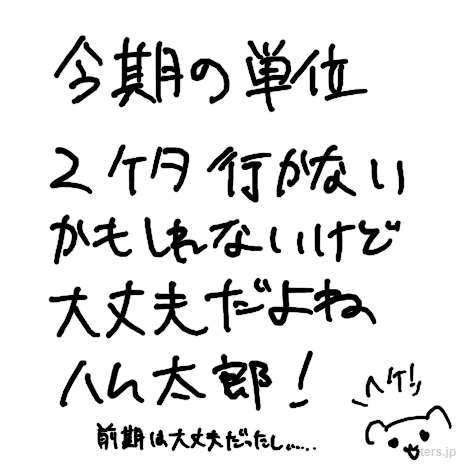 今期の単位
2ケタ行かない
かもしれないけど
大丈夫だよね、
ハム太郎!
ヘケ!ッ
前期は大丈夫だったし……
ters.jp